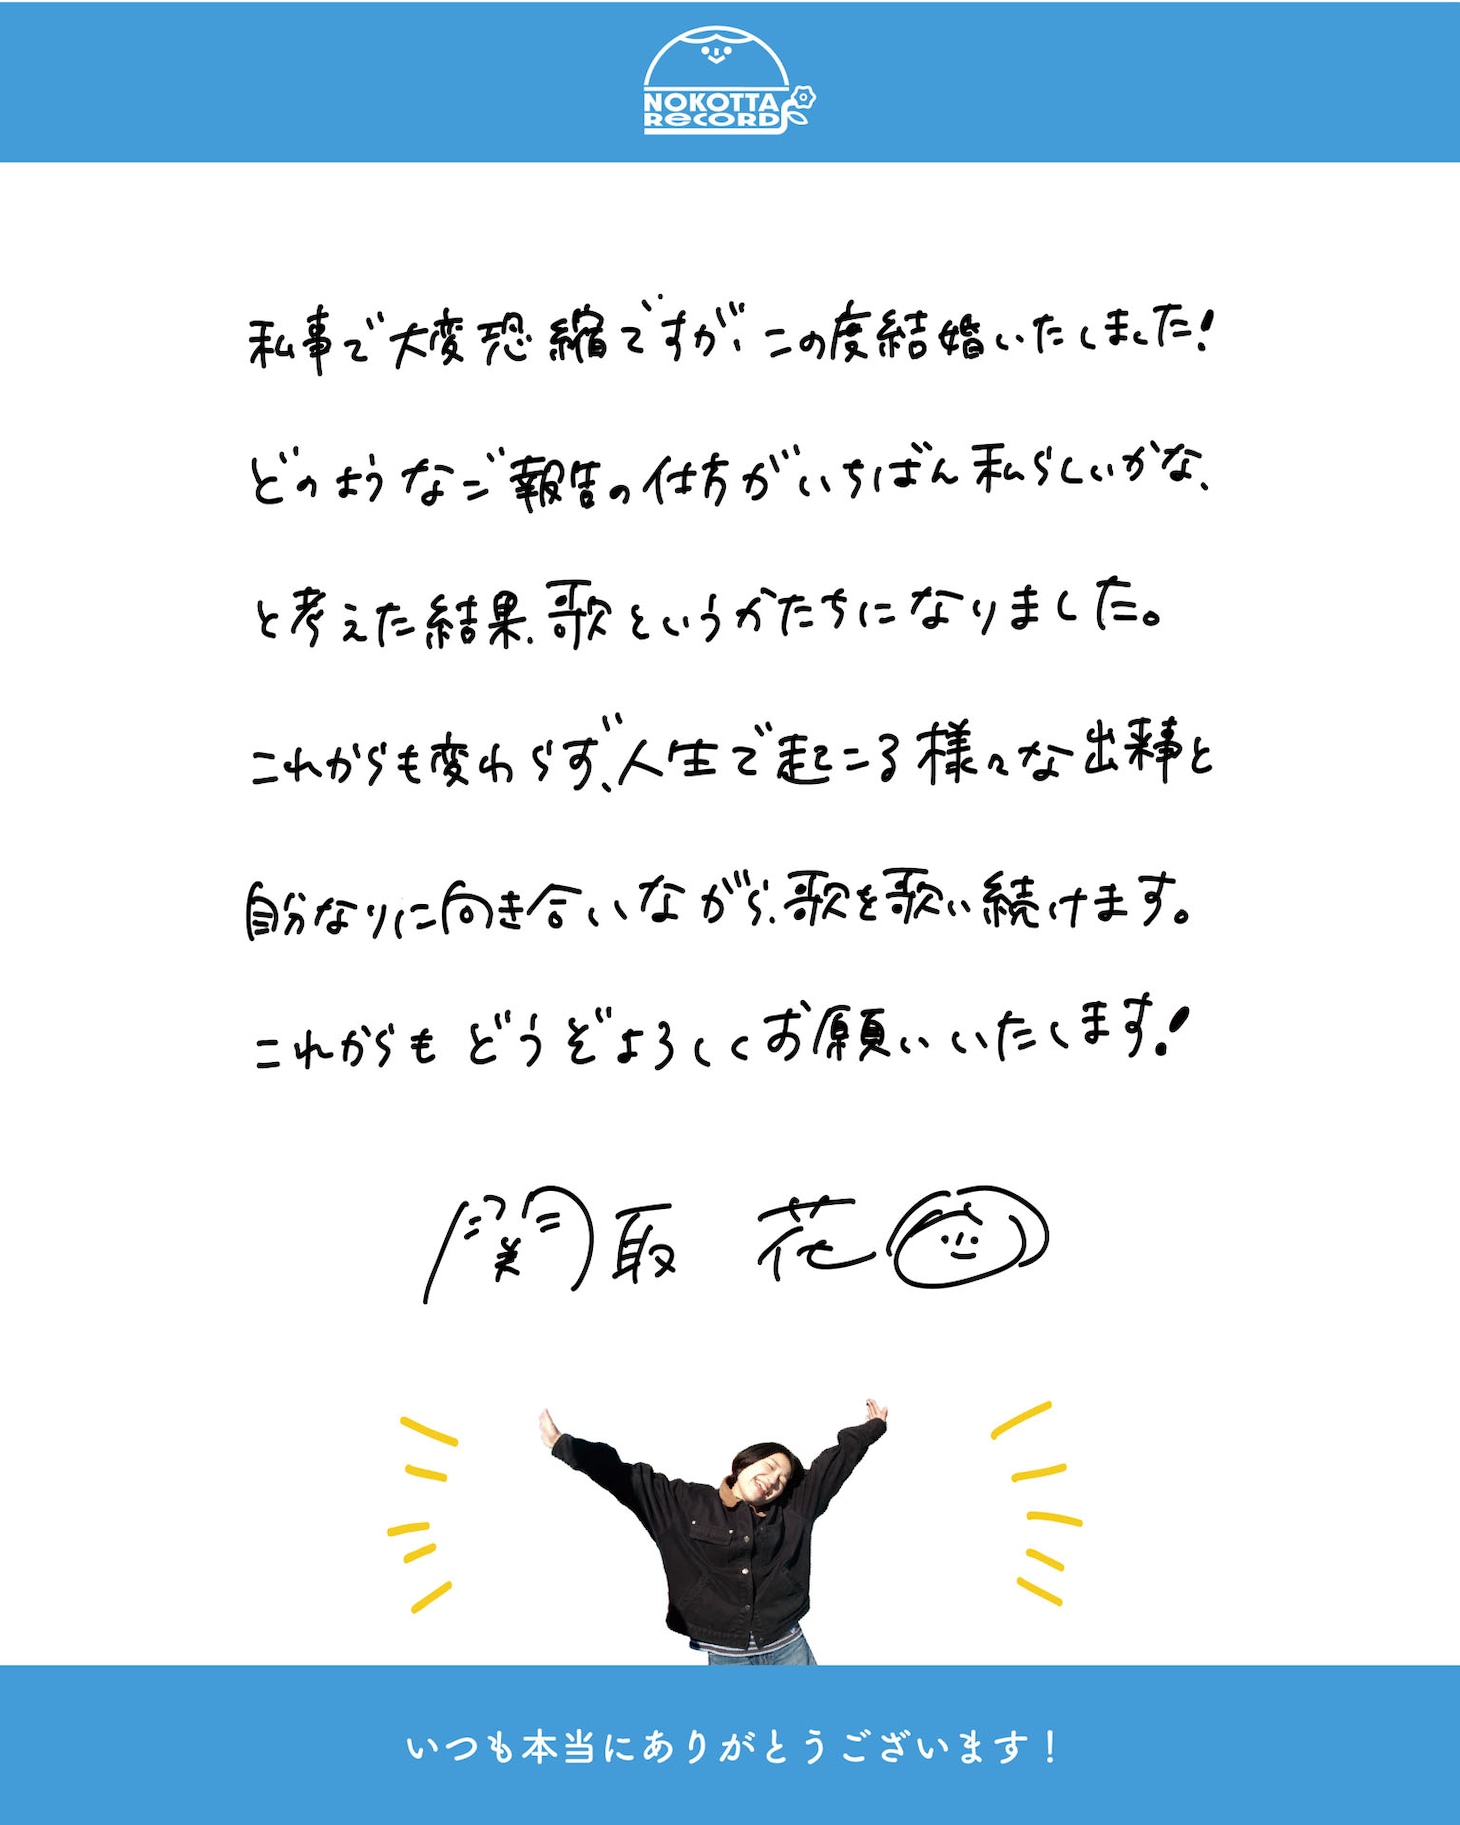 NOKOTTA
RECORD
私事で大変恐縮ですが、この度結婚いたしました!
どのようなご報告の仕方がいちばん私らしいかな、
と考えた結果、歌というかたちになりました。
これからも変わらず、人生で起こる様々な出来事と
自分なりに向き合いながら、歌を歌い続けます。
これからもどうぞよろしくお願いいたします!
関取 花
いつも本当にありがとうございます!